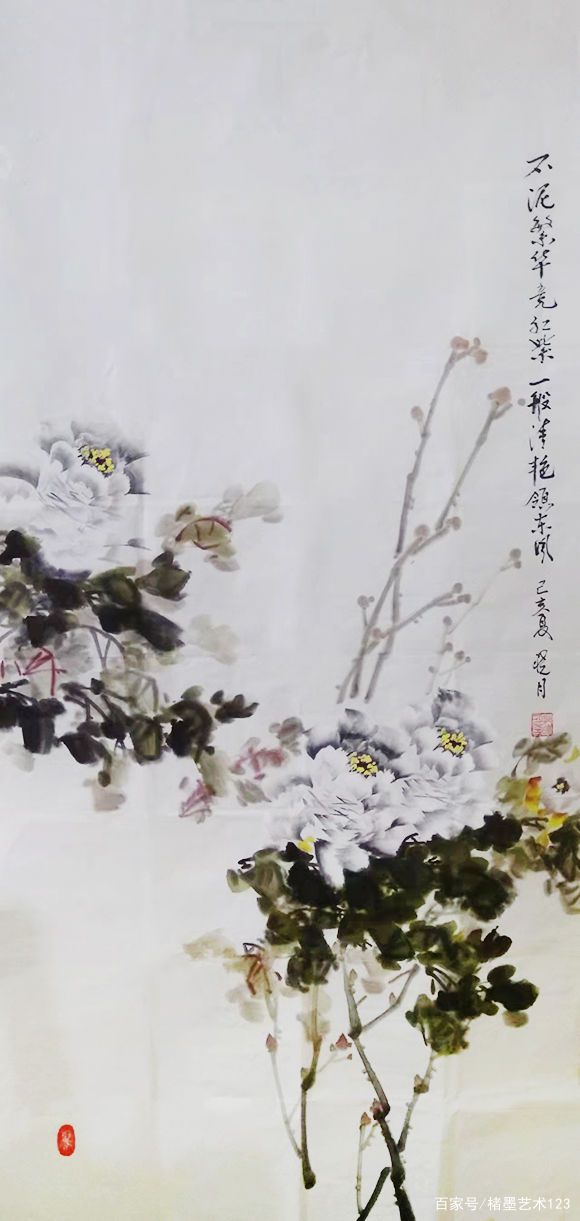 不泥繁华竞红紫一般清艳领东风
己亥夏 月
百家号/楮墨艺术123